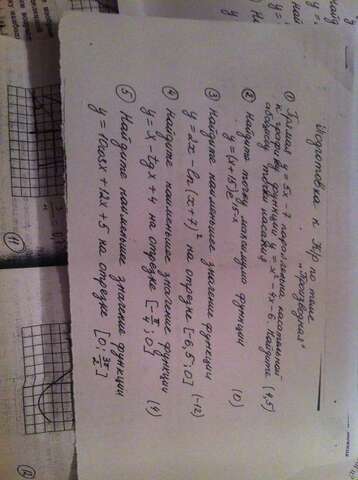 Подготовка к К/р по теме
"Производная"
① Прямая y = 5x - 7 параллельна касательной
к графику функции y = x² - 4x + 6. Найдите
абсциссу точки касания. (4,5)
② Найдите точку максимума функции
y = (x + 15)e^(15-x) (0)
③ Найдите наименьшее значение функции
y = 2x - ln(x+7)² на отрезке [-6,5; 0] (-12)
④ Найдите наименьшее значение функции
y = x - tgx + 4 на отрезке [-π/4; 0] (4)
⑤ Найдите наименьшее значение функции
y = 10cos x + 12x + 5 на отрезке [0; 3π/2]
11
12